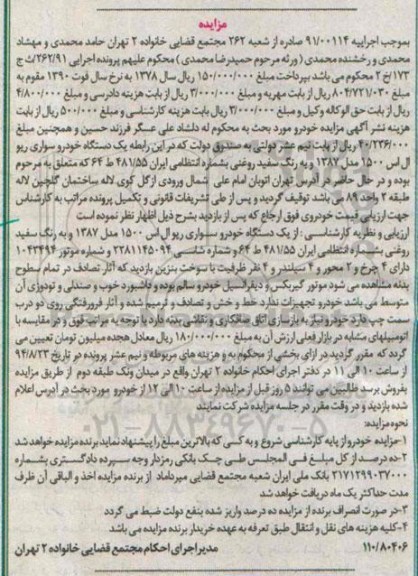 مزایده
بموجب اجراییه ۹۱/۰۰۱۱۴ صادره از شعبه ۲۶۲ مجتمع قضایی خانواده ۲ تهران حامد محمدی و مهشاد
محمدی و رخشنده محمدی ( ورثه مرحوم حمیدرضا محمدی ) محکوم علیهم پرونده اجرایی ۲۶۲/۹۱/ث ج
۱۷۳/خ ۲ محکوم می باشد بپرداخت مبلغ ۱۵۰/۰۰۰/۰۰۰ ریال سال ۱۳۷۸ به نرخ سال فوت ۱۳۹۰ مقوم به
مبلغ ۸۰۴/۷۲۱/۰۳۰ ریال از بابت مهریه و مبلغ ۳/۰۰۰/۰۰۰ ریال از بابت هزینه دادرسی و مبلغ ۴/۸۰۰/۰۰۰
ریال از بابت حق الوکاله وکیل و مبلغ ۳/۰۰۰/۰۰۰ ریال بابت هزینه کارشناسی و مبلغ ۵۰۰/۰۰۰ ریال از بابت
هزینه نشر آگهی مزایده خودرو مورد بحث به محکوم له دلشاد علی عسگر فرزند حسین و همچنین مبلغ
۴۰/۲۳۶/۰۰۰ ریال از بابت نیم عشر دولتی به صندوق دولت که در این رابطه یک دستگاه خودرو سواری ریو
ال اس ۱۵۰۰ مدل ۱۳۸۷ و به رنگ سفید روغنی بشماره انتظامی ایران ۴۸۱/۵۵ ط ۶۴ که متعلق به مرحوم
بوده و در حال حاضر در آدرس تهران اتوبان امام علی شمال ورودی ازگل کوی لاله ساختمان گلچین لاله
طبقه ۳ واحد ۸۹ می باشد توقیف گردید و پس از طی تشریفات قانونی و تکمیل پرونده مراتب به کارشناس
جهت ارزیابی قیمت خودروی فوق ارجاع که پس از بازدید بشرح ذیل اظهار نظر نموده است
ارزیابی و نظریه کارشناسی : از یک دستگاه خودرو سواری ریو ال اس ۱۵۰۰ مدل ۱۳۸۷ و به رنگ سفید
روغنی بشماره انتظامی ایران ۴۸۱/۵۵ ط ۶۴ و شماره شاسی ۲۳۸۱۱۴۵۰۹۴ و شماره موتور ۱۰۴۳۴۹۴
دارای ۴ چرخ و ۲ محور و ۴ سیلندر و ۴ نفر ظرفیت با سوخت بنزین بازدید که آثار تصادف در تمام سطوح
بدنه مشاهده می شود موتور گیربکس و دیفرانسیل خودرو سالم بوده و داشبورد خوب و صندلی و تودوزی آن
متوسط می باشد خودرو تجهیزات ندارد خط و خش و تصادف و ترمیم شده و آثار فرورفتگی روی دو درب
سمت چپ دارد خودرو نیاز به بازسازی اتاق صافکاری و نقاشی بدنه دارد با توجه به مراتب فوق و در مقایسه با
اتومبیلهای مشابه در بازار فعلی ارزش آن به مبلغ ۱۸۰/۰۰۰/۰۰۰ ریال معادل هجده میلیون تومان تعیین می
گردد که مقرر گردید در ازای بخشی از محکوم به و هزینه های مربوطه و نیم عشر پرونده در تاریخ ۹۴/۸/۲۳
از ساعت ۱۰ الی ۱۱ در دفتر اجرای احکام خانواده ۲ تهران واقع در میدان ونک طبقه دوم از طریق مزایده
بفروش برسد طالبین می توانند ۵ روز قبل از مزایده از ساعت ۱۰ الی ۱۲ از خودرو مورد بحث در آدرس اعلام
شده بازدید و در وقت مقرر در جلسه مزایده شرکت نمایند
نحوه مزایده:
۱-مزایده خودرو از پایه کارشناسی شروع و به کسی که بالاترین مبلغ را پیشنهاد نماید برنده مزایده خواهد شد
۲-ده درصد از کل مبلغ فی المجلس طی چک بانکی رمزدار وجه سپرده دادگستری بشماره
۲۱۷۱۲۹۹۰۳۷۰۰۰ بانک ملی ایران شعبه مجتمع قضایی میرداماد از برنده مزایده اخذ و الباقی آن ظرف
مدت حداکثر یک ماه دریافت خواهد شد
۳-در صورت انصراف برنده از مزایده ده درصد واریز شده بنفع دولت ضبط می گردد
۴-کلیه هزینه های نقل و انتقال طبق تعرفه به عهده خریدار برنده مزایده می باشد
۱۱۰/۸۰۴۰۶ مدیر اجرای احکام مجتمع قضایی خانواده ۲ تهران
۰۲۱-۸۸۳۴۹۶۷۰-۵